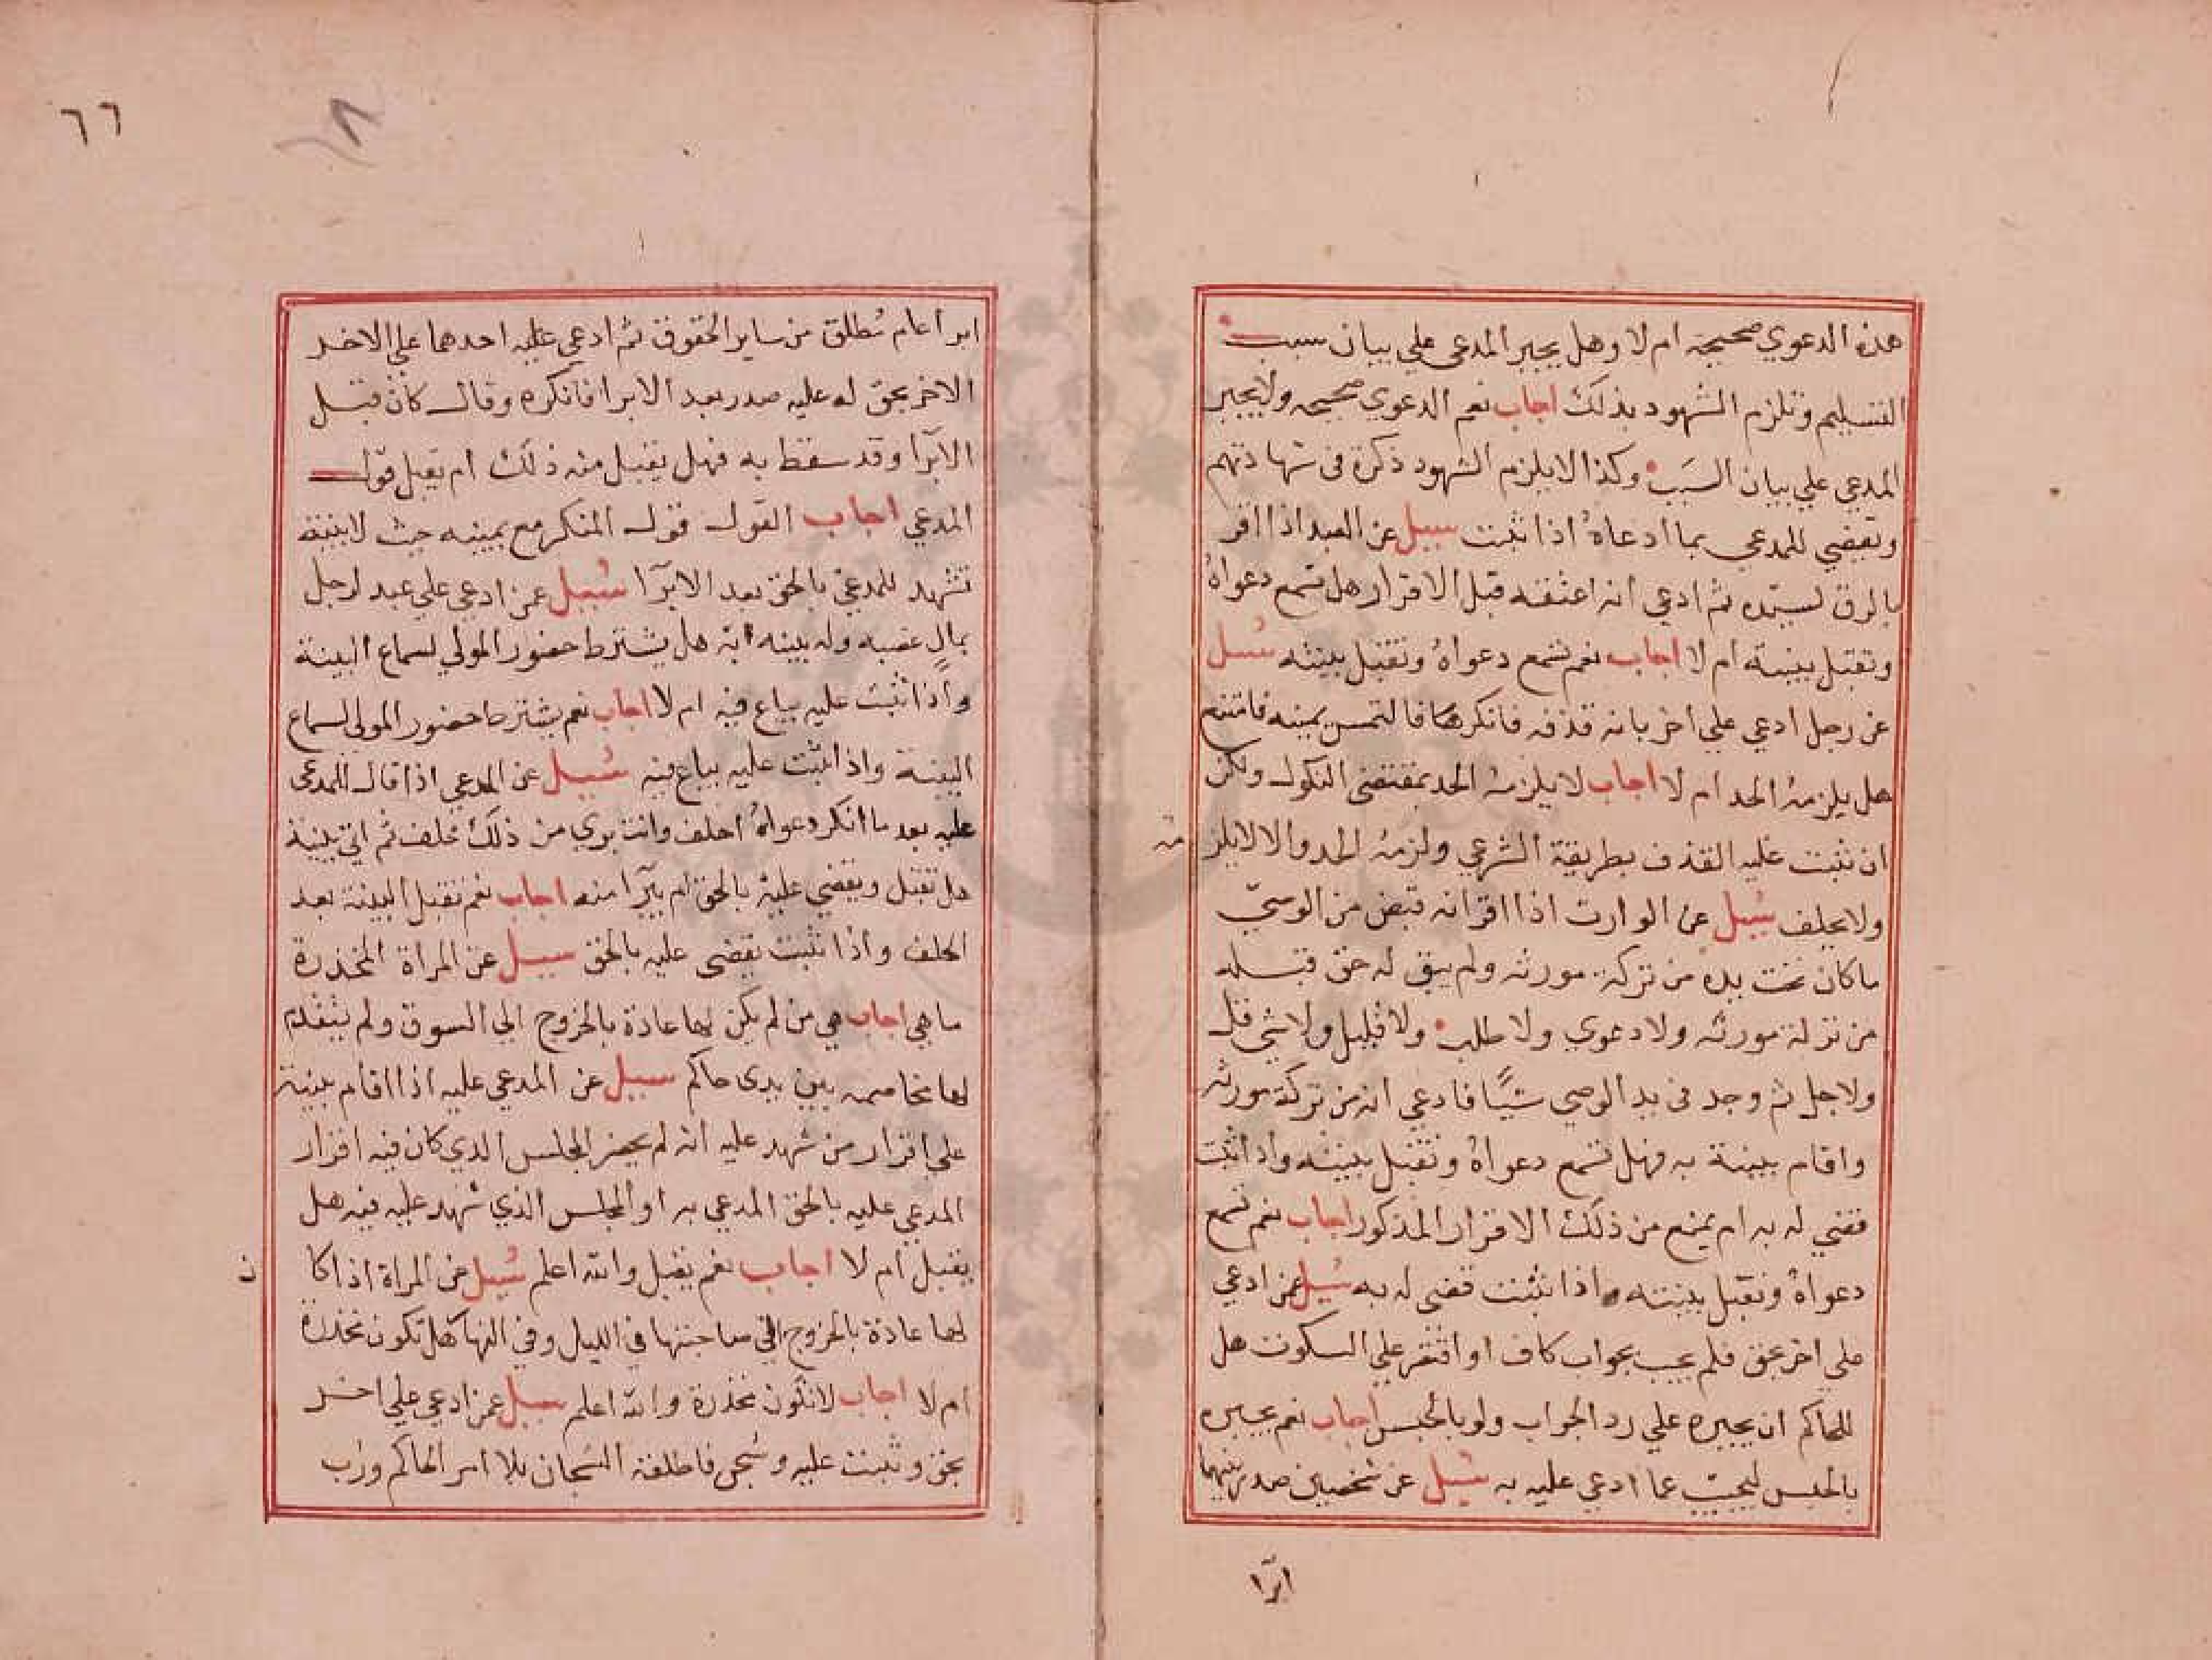 هذه الدعوي صحيحة ام لا وهل يجبر المدعي علي بيان سبب
التسليم وتلزم الشهود بذلك اجاب نعم الدعوي صحيحه ولا يجبر
المدعي علي بيان السبب وكذا لا يلزم الشهود ذكره في شهادتهم
ويقضي للمدعي بما ادعاه اذا ثبت سيل عن العبد اذا اقر
بالرق لسيده ثم ادعي انه اعتقه قبل الاقرار هل تسمع دعواه
وتقبل بينته ام لا اجاب نعم تسمع دعواه وتقبل بينته سيل
عن رجل ادعي علي اخر بانه قذفه فانكر فالتمس يمينه فامتنع
هل يلزمه الحد ام لا اجاب لا يلزمه الحد بمقتضي النكول ولكن
ان ثبت عليه القذف بطريقة الشرعي ولزمه الحد والا لا يلزمه
ولا يحلف سيل عن الوارث اذا اقر انه قبض من الوصي
ما كان تحت يده من تركة مورثه ولم يبق له حق قبله
من تركة مورثه ولا دعوي ولا طلب ولا قليل ولا شي قل
ولا جل ثم وجد في يد الوصي شيًا فادعي انه من تركة مورثه
واقام ببينة به فهل تسمع دعواه وتقبل بينته واذا ثبت
قضي له به ام يمنع من ذلك الاقرار المذكور اجاب نعم تسمع
دعواه وتقبل بينته واذا ثبت قضي له به سيل عمن ادعي
علي اخر بحق فلم يجب بجواب كاف او اقتصر علي السكوت هل
للحاكم ان يجبره علي رد الجواب ولو بالحبس اجاب نعم يجبره
بالحبس ليجيب عما ادعي عليه به سيل عن شخصين صدر بينهما
ابرا
٦٦
ابرا عام مطلق من ساير الحقوق ثم ادعي عليه احدهما علي الاخر
الاخر بحق له عليه صدر بعد الابرا فانكره وقال كان قبل
الابرا وقد سقط به فهل يقبل منه ذلك ام يقبل قول
المدعي اجاب القول قول المنكر مع يمينه حيث لا بينة
تشهد للمدعي بالحق بعد الابرا سيل عمن ادعي علي عبد لرجل
بمال غصبه وله بينه انه هل يشترط حضور المولي لسماع البينة
واذا ثبت عليه يباع فيه ام لا اجاب نعم يشترط حضور المولي لسماع
البينة واذا ثبت عليه يباع فيه سيل عن المدعي اذا قال للمدعي
عليه بعد ما انكر دعواه احلف وانت بري من ذلك فحلف ثم اتي ببينة
هل تقبل ويقضي عليه بالحق ام يبرا منه اجاب نعم تقبل البينة بعد
الحلف واذا ثبت يقضي عليه بالحق سيل عن المراة المخدرة
ما هي اجاب هي من لم يكن لها عادة بالخروج الي السوق ولم يتقدم
لها مخاصمه بين يدي حاكم سيل عن المدعي عليه اذا اقام بينة
علي اقرار من شهد عليه انه لم يحضر المجلس الذي كان فيه اقرار
المدعي عليه بالحق المدعي به او المجلس الذي شهد عليه فيه هل
يقبل ام لا اجاب نعم يقبل والله اعلم سيل عن المراة اذا كا
ن
لها عادة بالخروج الي صاحبتها في الليل وفي النهار هل تكون مخدرة
ام لا اجاب لا تكون مخدرة والله اعلم سيل عمن ادعي علي اخر
بحق وثبت عليه وسجن فاطلقه السجان بلا امر الحاكم ورب